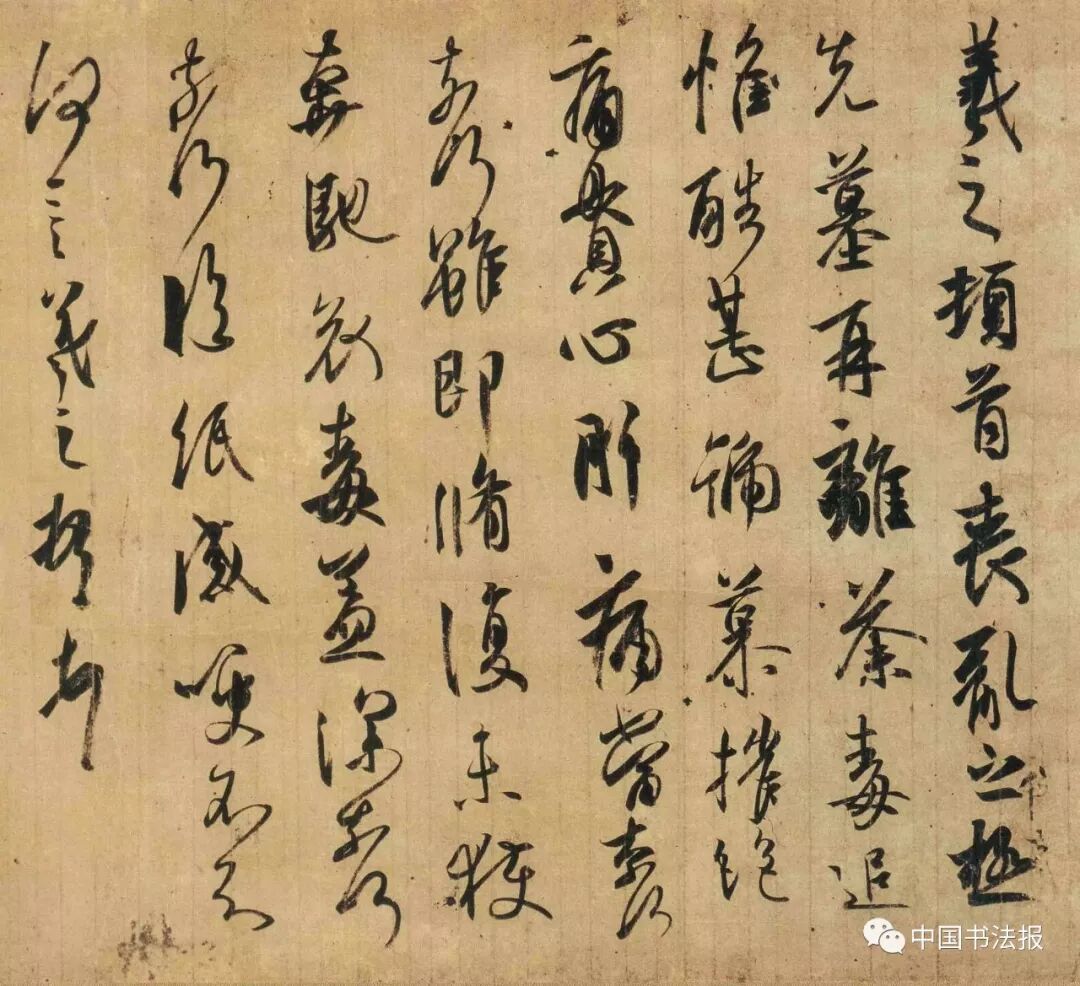 羲之頓首喪亂之極
先墓再離荼毒追
惟酷甚號慕摧絕
痛貫心肝痛當奈何
奈何雖即脩復未獲
奔馳哀毒益深奈何
奈何臨紙感哽不知
何言羲之頓首頓首
中国书法报